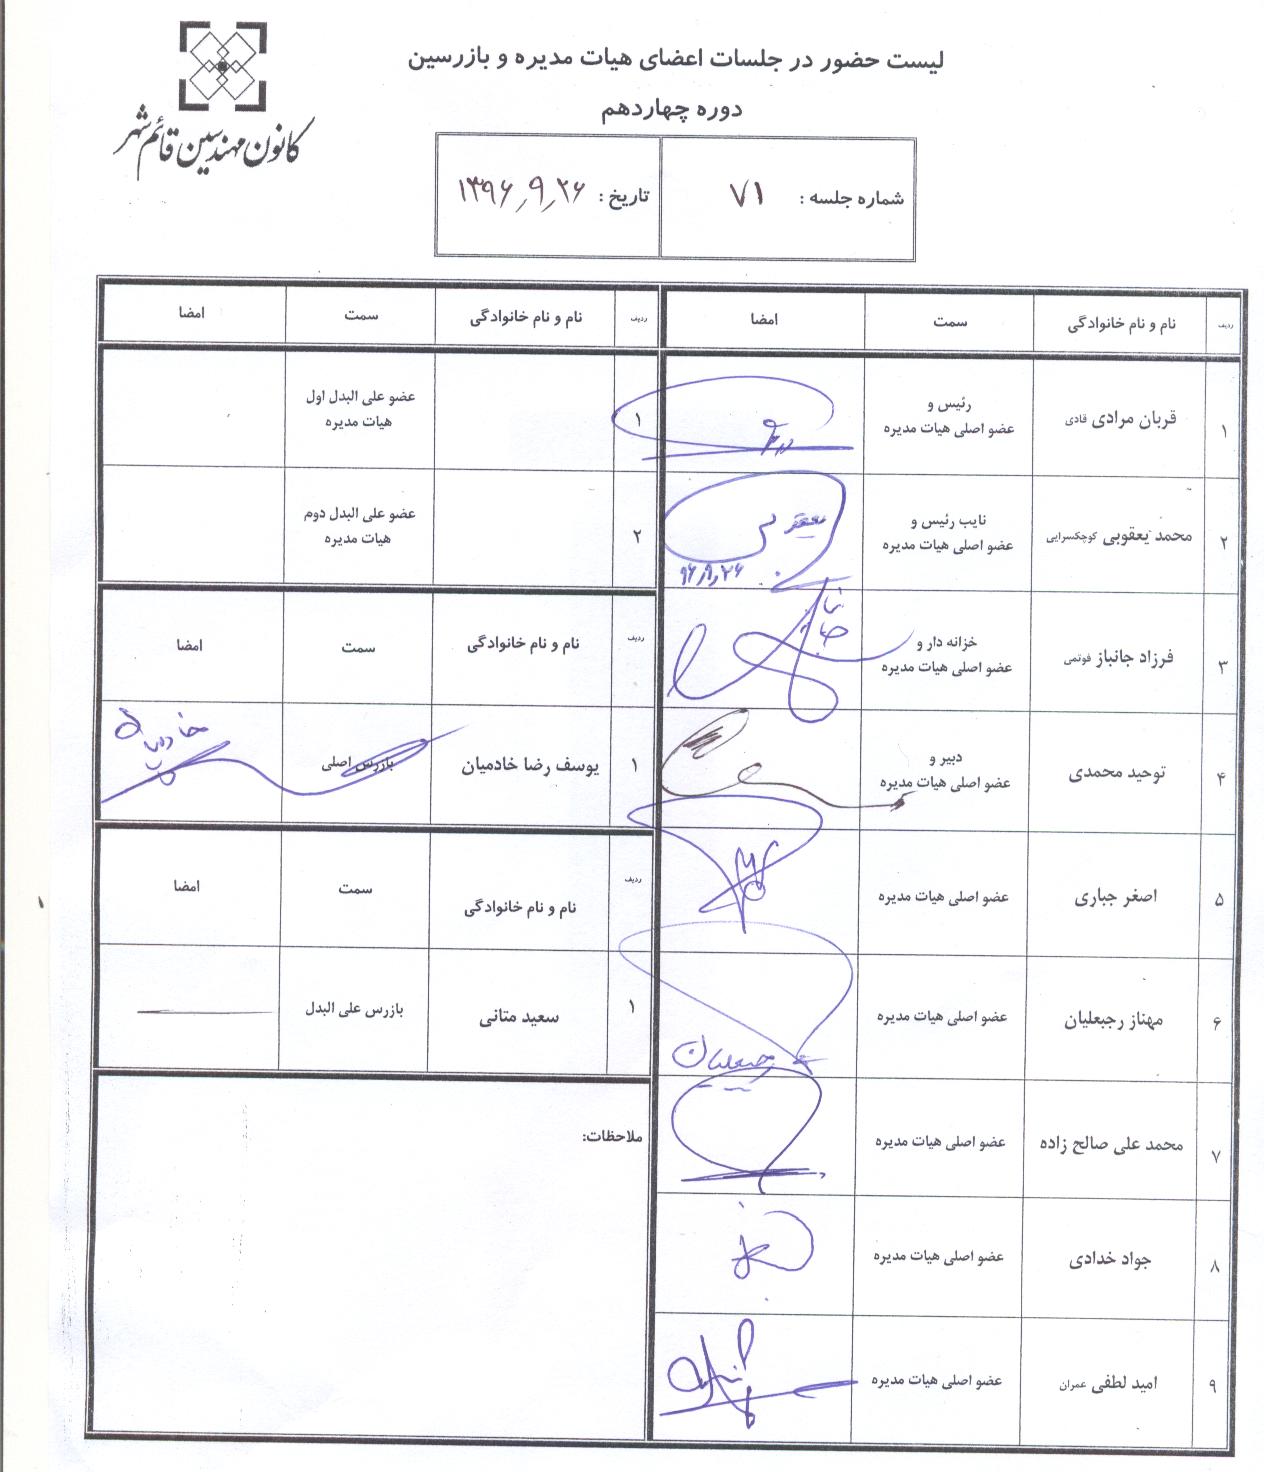 کانون مهندسین قائم شهر
لیست حضور در جلسات اعضای هیات مدیره و بازرسین
دوره چهاردهم
شماره جلسه : ۷۱
تاریخ : ۱۳۹۶٫۹٫۲۶
ردیف نام و نام خانوادگی سمت امضا
۱ قربان مرادی قادی رئیس و
عضو اصلی هیات مدیره
۲ محمد یعقوبی کوچکسرایی نایب رئیس و
عضو اصلی هیات مدیره
یعقوبی
۹۶٫۹٫۲۶
۳ فرزاد جانباز فوتمی خزانه دار و
عضو اصلی هیات مدیره
۴ توحید محمدی دبیر و
عضو اصلی هیات مدیره
۵ اصغر جباری عضو اصلی هیات مدیره
۶ مهناز رجبعلیان عضو اصلی هیات مدیره
رجبعلیان
۷ محمد علی صالح زاده عضو اصلی هیات مدیره
۸ جواد خدادی عضو اصلی هیات مدیره
۹ امید لطفی عمران عضو اصلی هیات مدیره
ردیف نام و نام خانوادگی سمت امضا
۱ عضو علی البدل اول
هیات مدیره
۲ عضو علی البدل دوم
هیات مدیره
ردیف نام و نام خانوادگی سمت امضا
۱ یوسف رضا خادمیان بازرس اصلی
خادمیان
ردیف نام و نام خانوادگی سمت امضا
۱ سعید متانی بازرس علی البدل
ملاحظات: